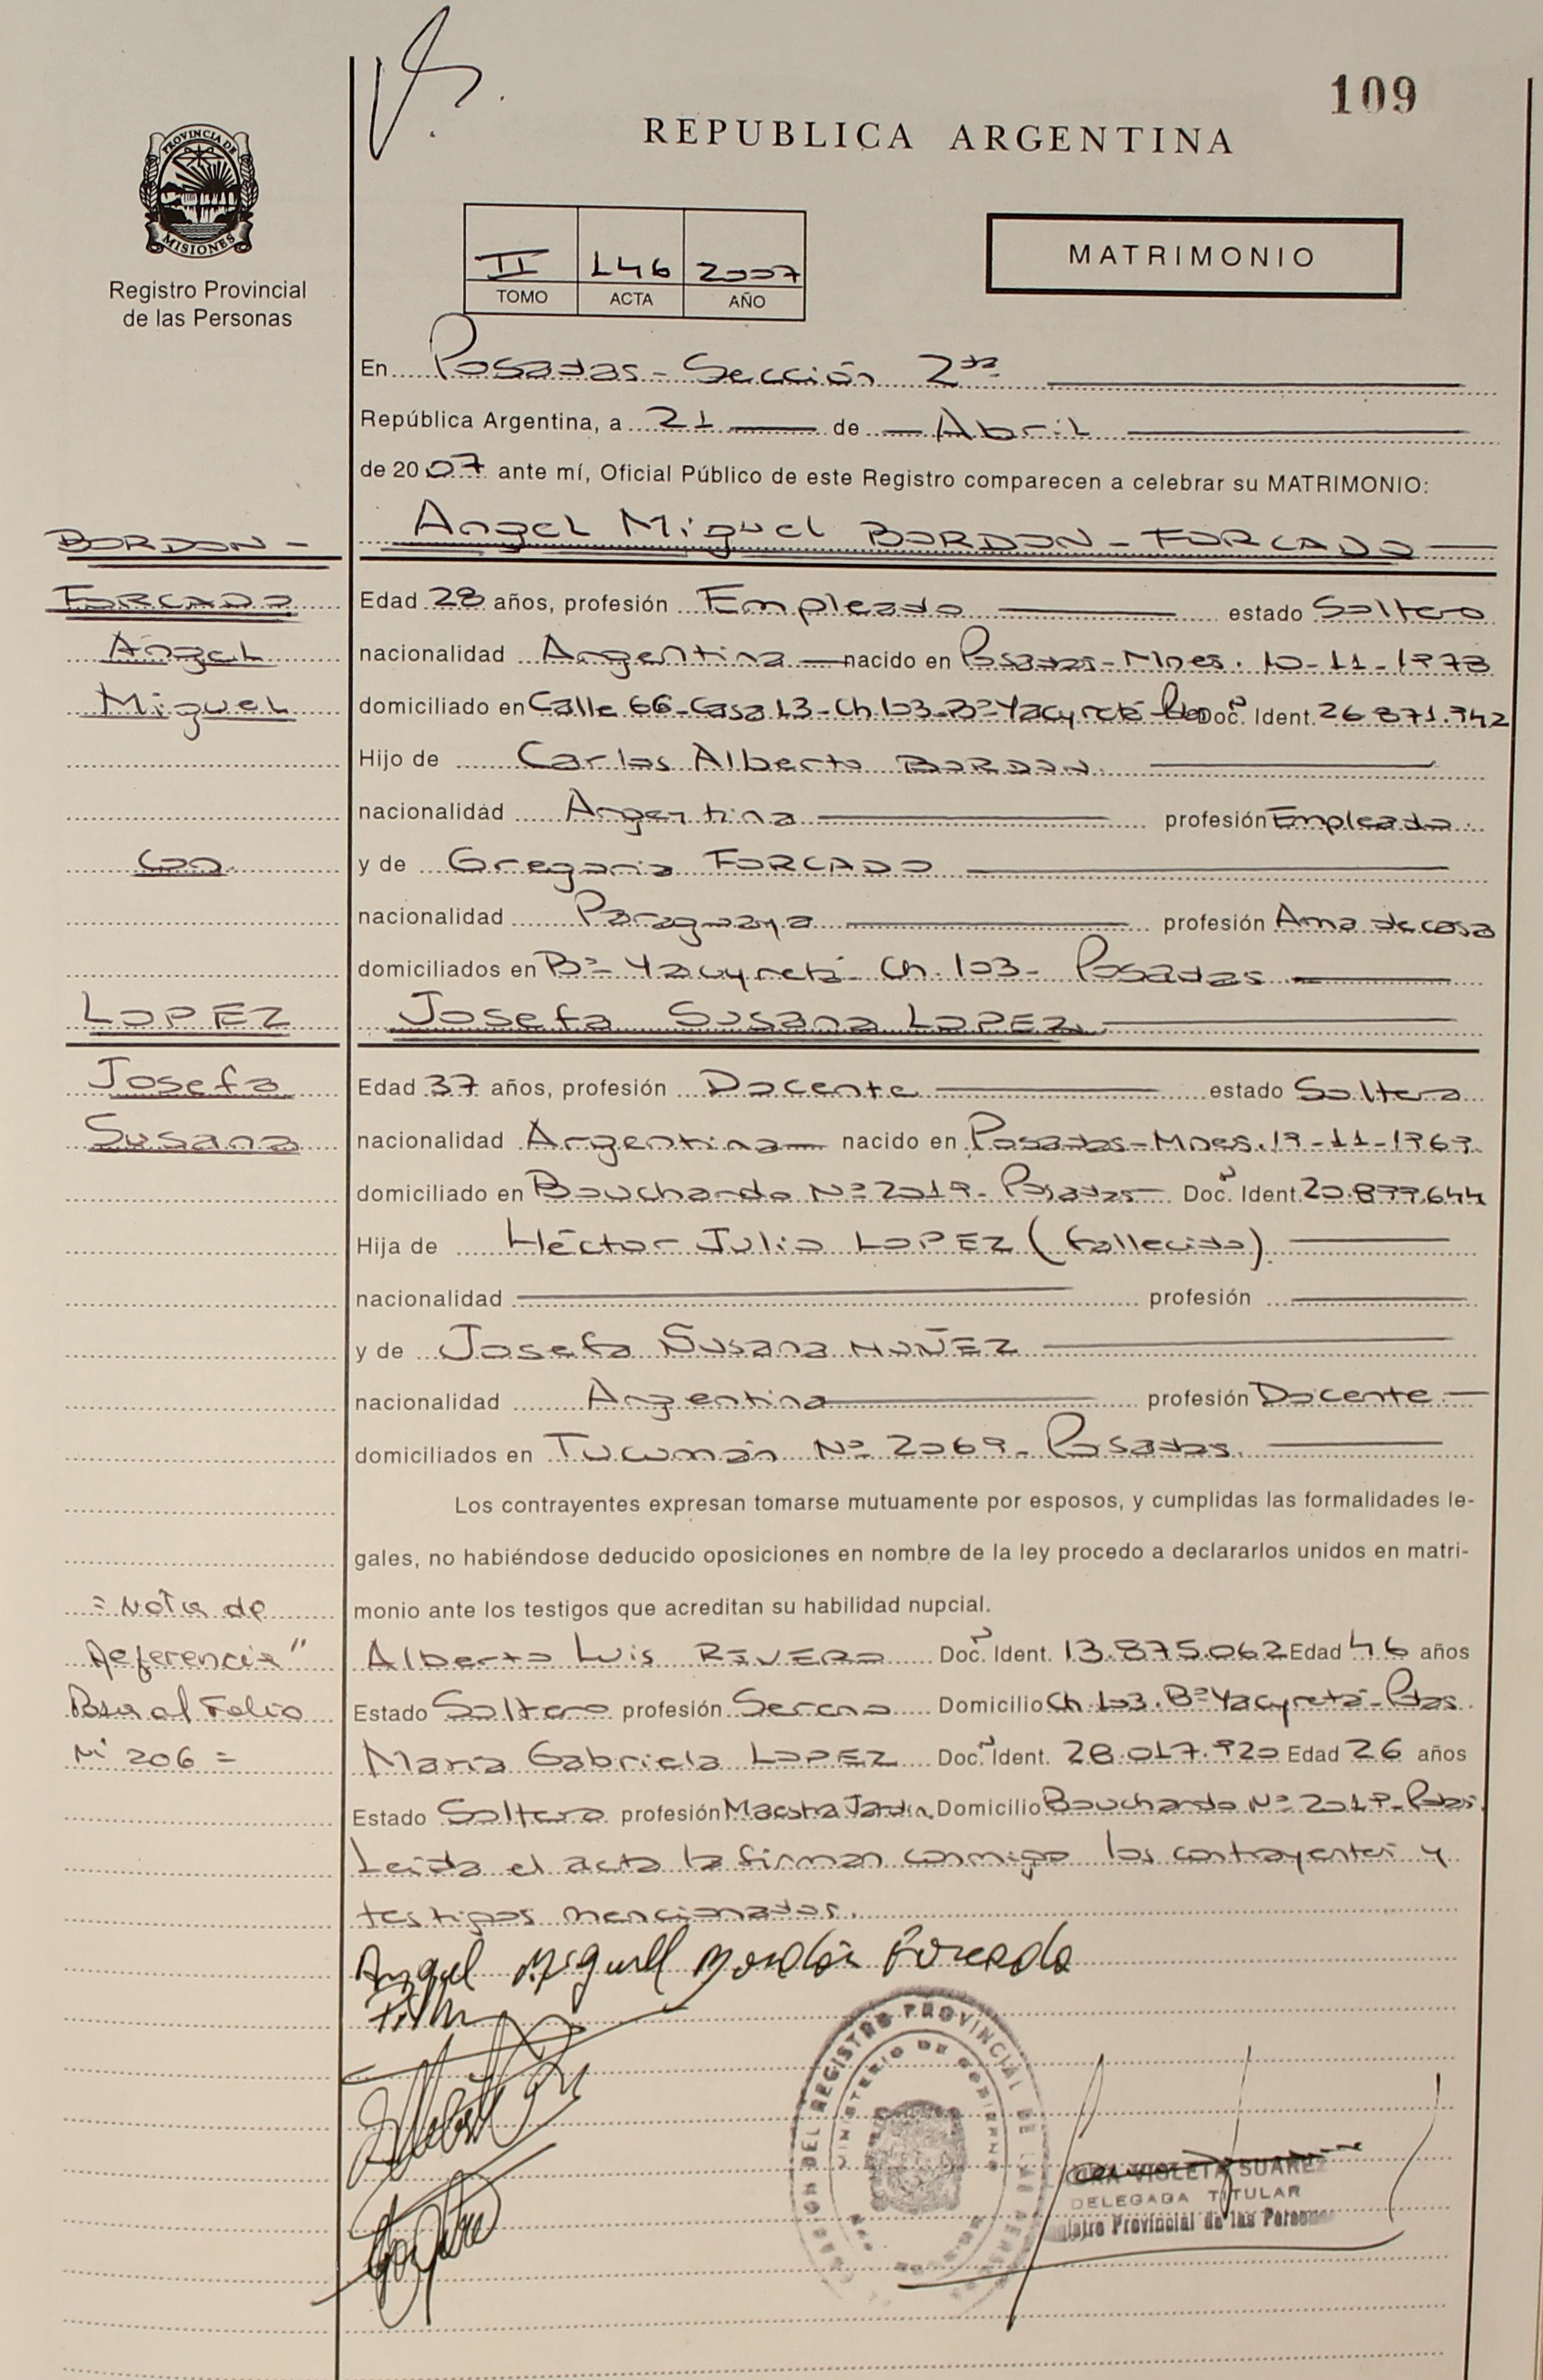 109
REPUBLICA ARGENTINA
PROVINCIA DE
MISIONES
Registro Provincial
de las Personas
II L46 2007
TOMO ACTA AÑO
MATRIMONIO
En Posadas - Sección 2da
República Argentina, a 21 de Abril
de 2007 ante mí, Oficial Público de este Registro comparecen a celebrar su MATRIMONIO:
BORDON - Angel Miguel BORDON - FORCADO
FORCADO Edad 28 años, profesión Empleado estado Soltero
Angel nacionalidad Argentina nacido en Posadas - Mnes. 10-11-1978
Miguel domiciliado en Calle 66 - Casa 13 - Ch 103 - Bº Yacyretá Doc. Ident. 26.871.942
Hijo de Carlos Alberto BORDON.
nacionalidad Argentina profesión Empleado.
Con y de Gregoria FORCADO
nacionalidad Paraguaya profesión Ama de casa
domiciliados en Bº Yacyretá - Ch. 103 - Posadas
LOPEZ Josefa Susana LOPEZ
Josefa Edad 37 años, profesión Docente estado Soltera
Susana nacionalidad Argentina nacido en Posadas - Mnes. 19-11-1969.
domiciliado en Bouchardo Nº 2019 - Posadas Doc. Ident. 20.899.644
Hija de Héctor Julio LOPEZ (fallecido).
nacionalidad profesión
y de Josefa Susana NUÑEZ
nacionalidad Argentina profesión Docente -
domiciliados en Tucumán Nº 2069 - Posadas.
Los contrayentes expresan tomarse mutuamente por esposos, y cumplidas las formalidades le-
gales, no habiéndose deducido oposiciones en nombre de la ley procedo a declararlos unidos en matri-
= Nota de monio ante los testigos que acreditan su habilidad nupcial.
Referencia" Alberto Luis RIVERO Doc. Ident. 13.875.062 Edad 46 años
Pasa al Folio Estado Soltero profesión Sereno Domicilio Ch 103. Bº Yacyretá - Pdas.
Nº 206 = María Gabriela LOPEZ Doc. Ident. 28.017.920 Edad 26 años
Estado Soltera profesión Maestra Jardin. Domicilio Bouchardo Nº 2019 - Pdas.
Leída el acta la firman conmigo los contrayentes y
testigos mencionados.
Angel Miguel Bordón Forcado
REGISTRO PROVINCIAL DE LAS
MINISTERIO DE GOBIERNO
VIOLETA SUAREZ
DELEGADA TITULAR
Registro Provincial de las Personas